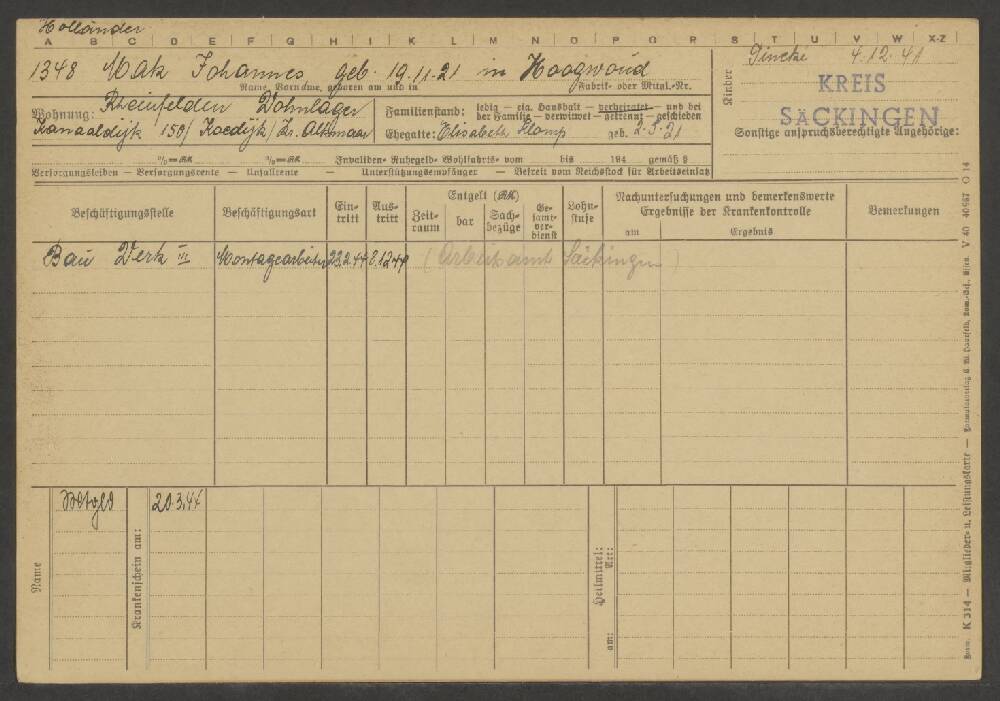 Holländer
A B C D E F G H I K L M N O P Q R S T U V W X-Z
1348 Mak Johannes geb. 19.11.21 in Hoogwoud
Name, Vorname, geboren am und in
Fabrik- oder Mitgl.-Nr.
Kinder
4.12.41
KREIS
SÄCKINGEN
Sonstige anspruchsberechtigte Angehörige:
Wohnung: Rheinfelden Wohnlager
Kanaaldijk 150/ Koedijk/ Alkmaar
Familienstand: ledig — eig. Haushalt — verheiratet — und bei
der Familie — verwitwet — getrennt — geschieden
Ehegatte: Elisabeth geb. 2.5.21
%=RK %=RK Invaliden- Ruhrgeld- Wohlfahrts- vom bis 194 gemäß §
Versorgungsleiden — Versorgungsrente — Unfallrente — Unterstützungsempfänger — Befreit vom Reichsstock für Arbeitseinsatz
Beschäftigungsstelle
Beschäftigungsart
Ein-
tritt
Aus-
tritt
Entgelt (RK)
Zeit-
raum
bar
Sach-
bezüge
Ge-
samt-
ver-
dienst
Lohn-
stufe
Nachuntersuchungen und bemerkenswerte
Ergebnisse der Krankenkontrolle
am
Ergebnis
Bemerkungen
Bau Werk III Montagearbeiter 23.2.44 8.12.44 (Arbeitsamt Säckingen)
Name
Krankenschein am:
20.3.44
Heilmittel:
am: Art:
Form. K 314 — Mitglieder- u. Leistungskarte —
V 40 40 667 O 14